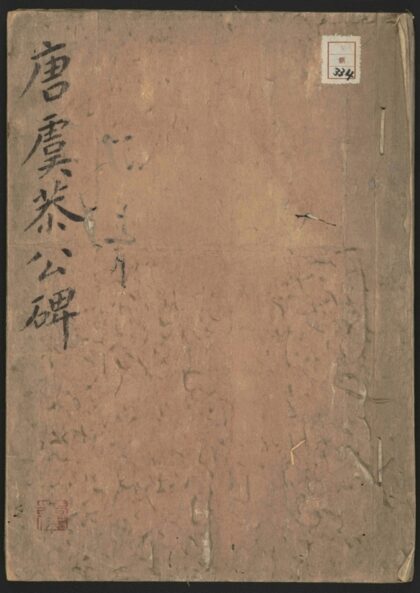 唐虞恭公碑
334